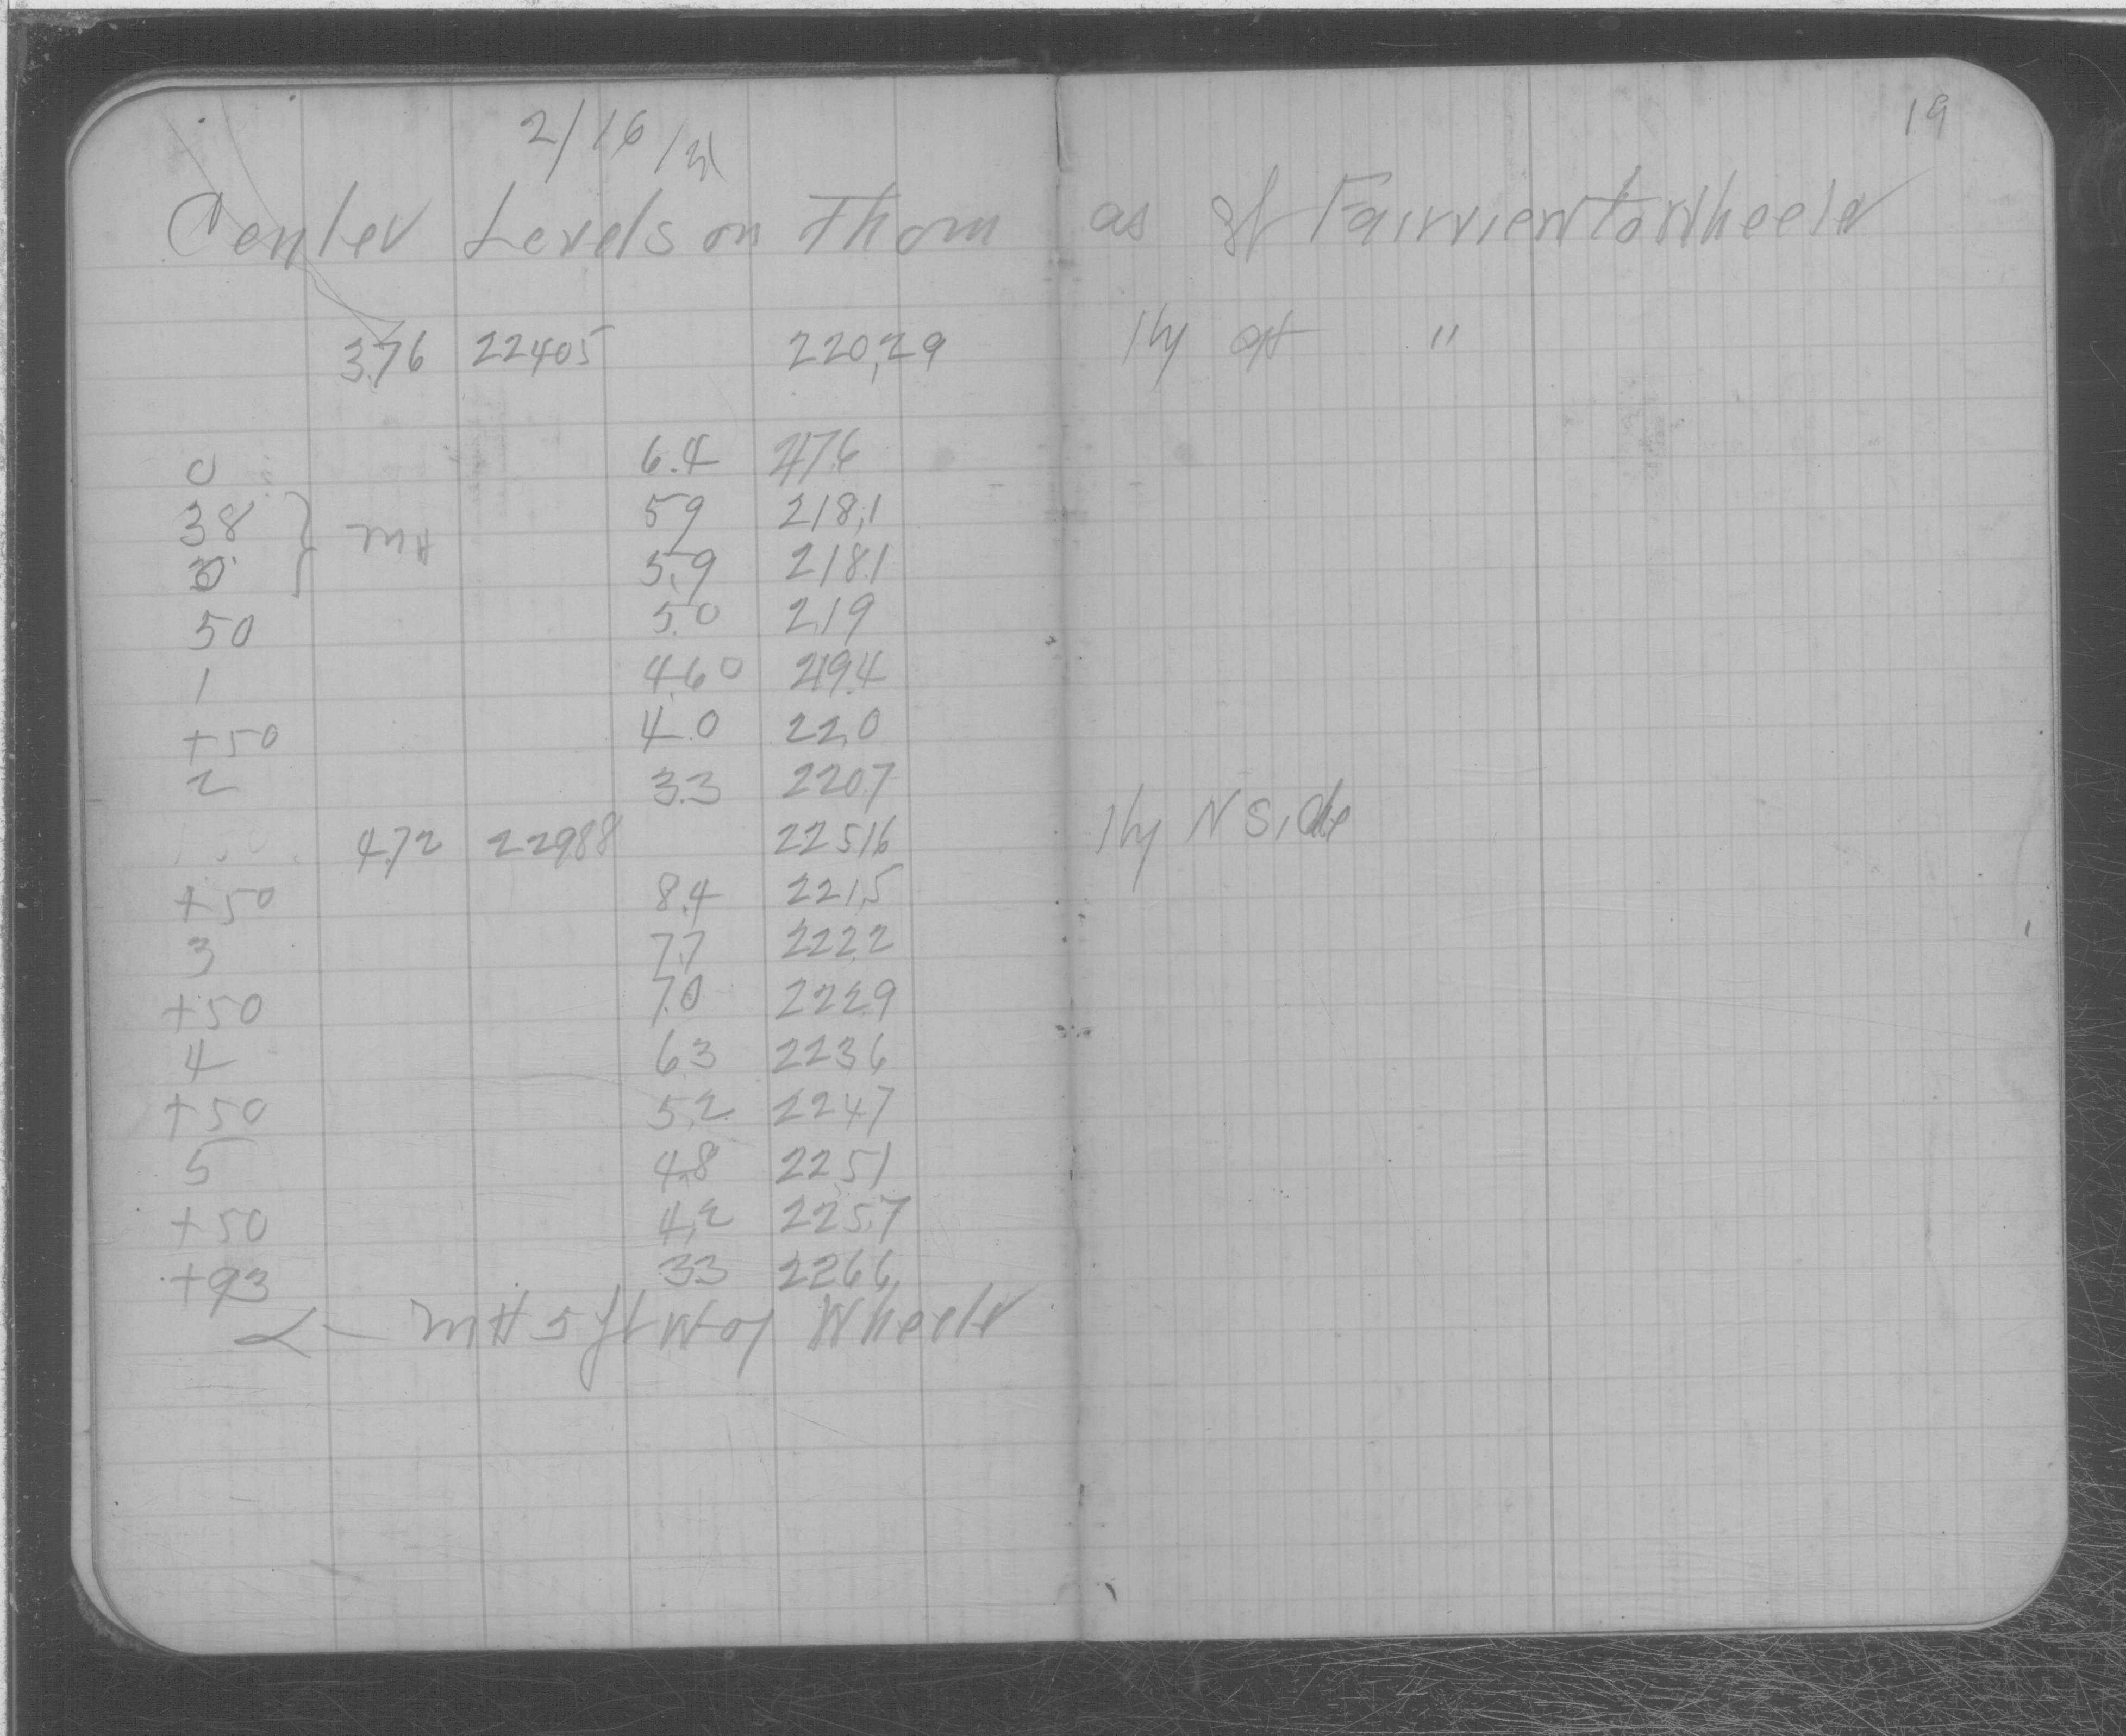 19
2/16/31
Center Levels on Thomas St Fairview to Wheeler
3.76 22405 220,29 Hy at "
0 6.4 217.6
38 59 218,1
0 5,9 218.1
50 5.0 219
1 4.60 219.4
+50 4.0 22,0
2 3.3 2207
4.72 22988 22516 Hy N Side
+50 8.4 221,5
3 7.7 222,2
+50 7.0 222.9
4 6.3 223.6
+50 5.2 2247
5 4.8 22,51
+50 4,2 225.7
+93 33 226.6
MH 5 ft W of Wheeler